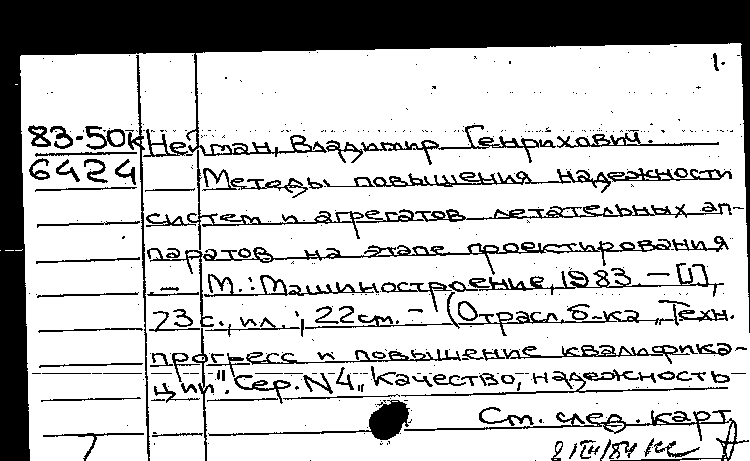 1.
83-50к Нейман, Владимир Генрихович.
6424 Методы повышения надежности
систем и агрегатов летательных ап-
паратов на этапе проектирования
.– М.: Машиностроение, 1983. – [1],
73 с., ил.; 22 см. – (Отрасл. б-ка „Техн.
прогресс и повышение квалифика-
ции". Сер. N4 „Качество, надежность
См. след. карт.